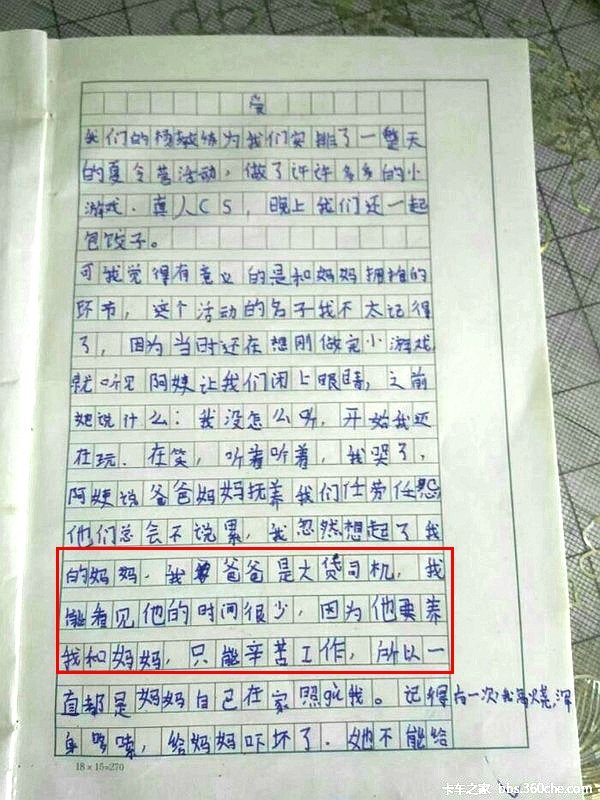 爱
我们的杨教练为我们安排了一整天
的夏令营活动，做了许许多多的小
游戏．真人CS，晚上我们还一起
包饺子。
可我觉得有意义的是和妈妈拥抱的
环节，这个活动的名子我不太记得
了，因为当时还在想刚做完小游戏
就听见阿姨让我们闭上眼睛，之前
她说什么：我没怎么听，开始我还
在玩．在笑，听着听着，我哭了，
阿姨说爸爸妈妈抚养我们任劳任怨
他们总会不说累，我忽然想起了我
的妈妈．我爸爸是大货司机，我
能看见他的时间很少，因为他要养
我和妈妈，只能辛苦工作，所以一
直都是妈妈自己在家照gu我。记得有一次，我高烧，浑
身哆嗦，给妈妈吓坏了．她不能给
18×15=270
卡车之家 bbs.360che.com